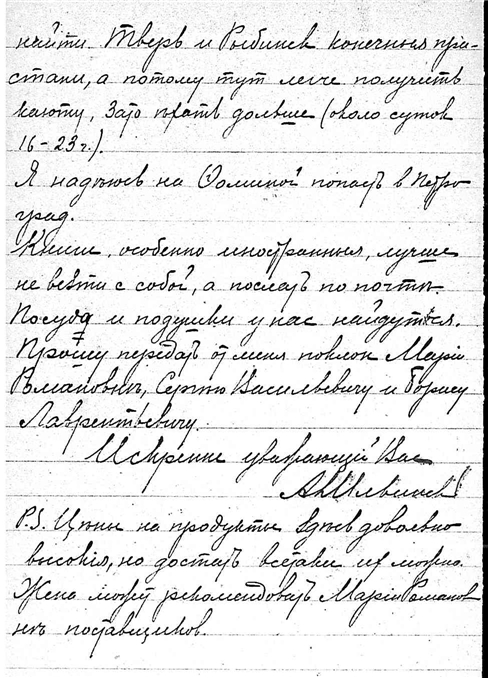 найти. Тверь и Рыбинск конечныя при-
стани, а потому тут легче получить
каюту, Зато ѣхать дольше (около суток
16-23 г.).
Я надѣюсь на Ѳоминой попасть в Петро
град.
Книги, особенно иностранныя, лучше
не везти с собой, а послать по почтѣ.
Посуда и подушки у нас найдутся.
Прошу передать от меня поклон Маріи
Романовнѣ, Сергѣю Васильевичу и Борису
Лаврентьевичу.
Искренне уважающій Вас
P.S. Цѣны на продукты здѣсь довольно
высокія, но достать всетаки их можно.
Жена может рекомендовать Маріи Романов
нѣ поставщиков.